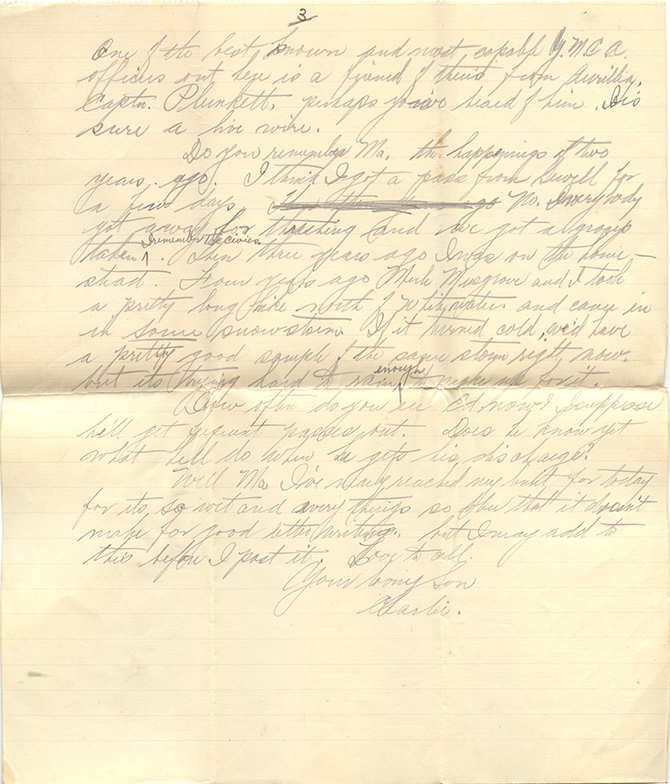 3
One of the best known and most capable Y.M.C.A.
officers out here is a friend of theirs from
Captn. Plunkett, perhaps you've heard of him. His
sure a live wire.
Do you remember Ma. the happenings of two
years ago. I think I got a pass from Sewell for
a few days Ma. Everybody
got away for threshing and we got a group
taken I remember the civies. Then three years ago I was on the home-
stead. Four years ago Musgrove and I took
a pretty long hike north of and came in
in some snowstorm If it turned cold, we'd have
a pretty good sample of the same storm right now.
but its trying hard to rain enough to make me forget.
How often do you see Ed now? I suppose
he'll get frequent passes out. Does he know yet
what he'll do when he gets his discharge?
Well Ma I've nearly reached my limit for today
for its so wet and everything so that it doesn't
make for good letter writing. but I may add to
this before I post it. Love to all.
Your loving son
Charlie.